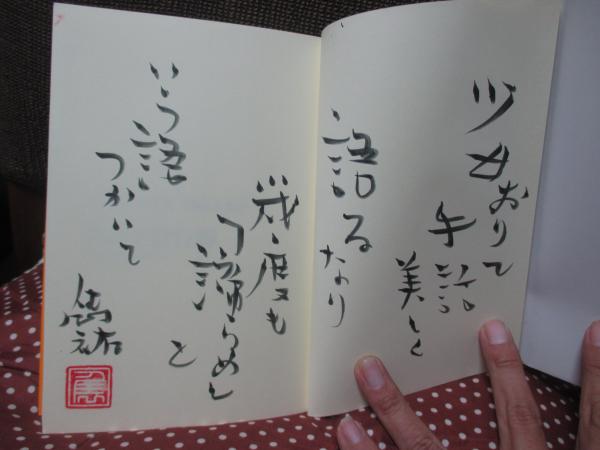 少女おりて
手話
美しく
語る
なり
幾度も
「諦らめし
と
いう語
つかいて